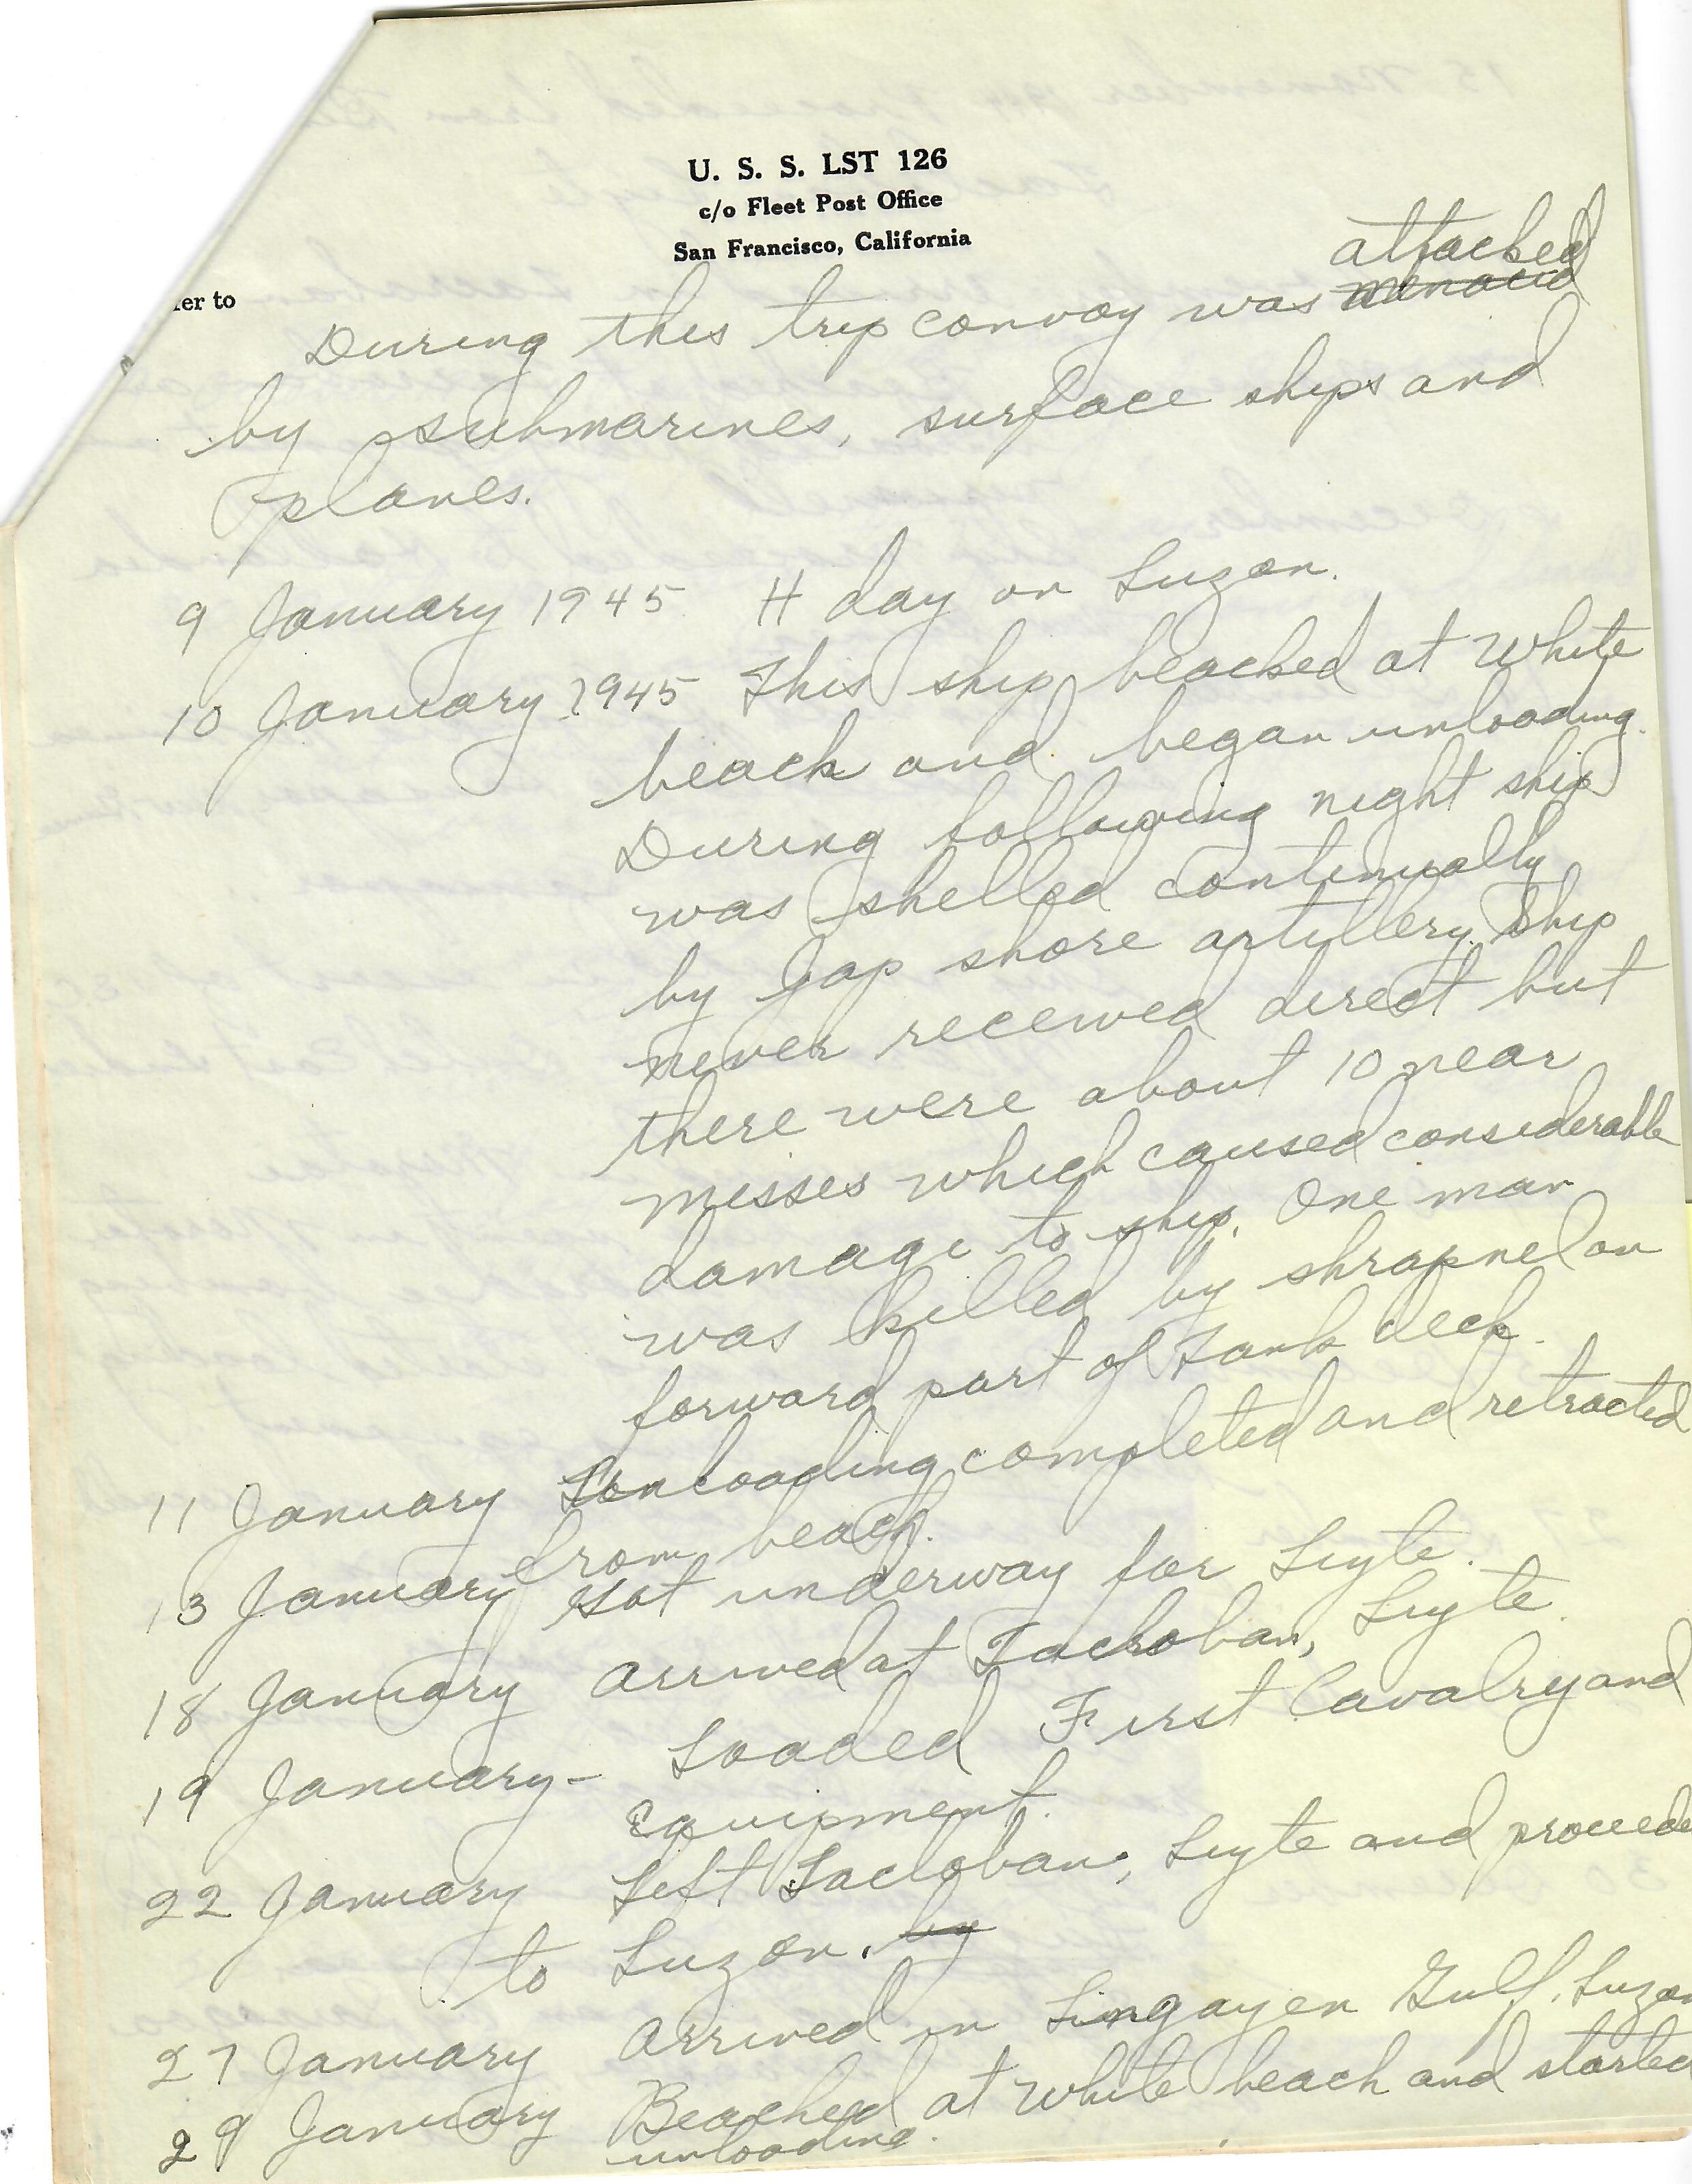 U. S. S. LST 126
c/o Fleet Post Office
San Francisco, California
er to
attacked
During this trip convoy was menaced
by submarines, surface ships and
planes.
9 January 1945 H day on Luzon.
10 January 1945 This ship beached at White
beach and began unloading.
During following night ship
was shelled continually
by Jap shore artillery. Ship
never received direct but
there were about 10 near
misses which caused considerable
damage to ship. One man
was killed by shrapnel on
forward part of Tank deck.
11 January Unloading completed and retracted
from beach.
13 January Got underway for Leyte.
18 January Arrived at Tacloban, Leyte.
19 January - Loaded First Cavalry and
equipment.
22 January Left Tacloban, Leyte and proceede
to Luzon. by
27 January Arrived in Lingayen Gulf, Luzon
29 January Beached at White beach and started
unloading.